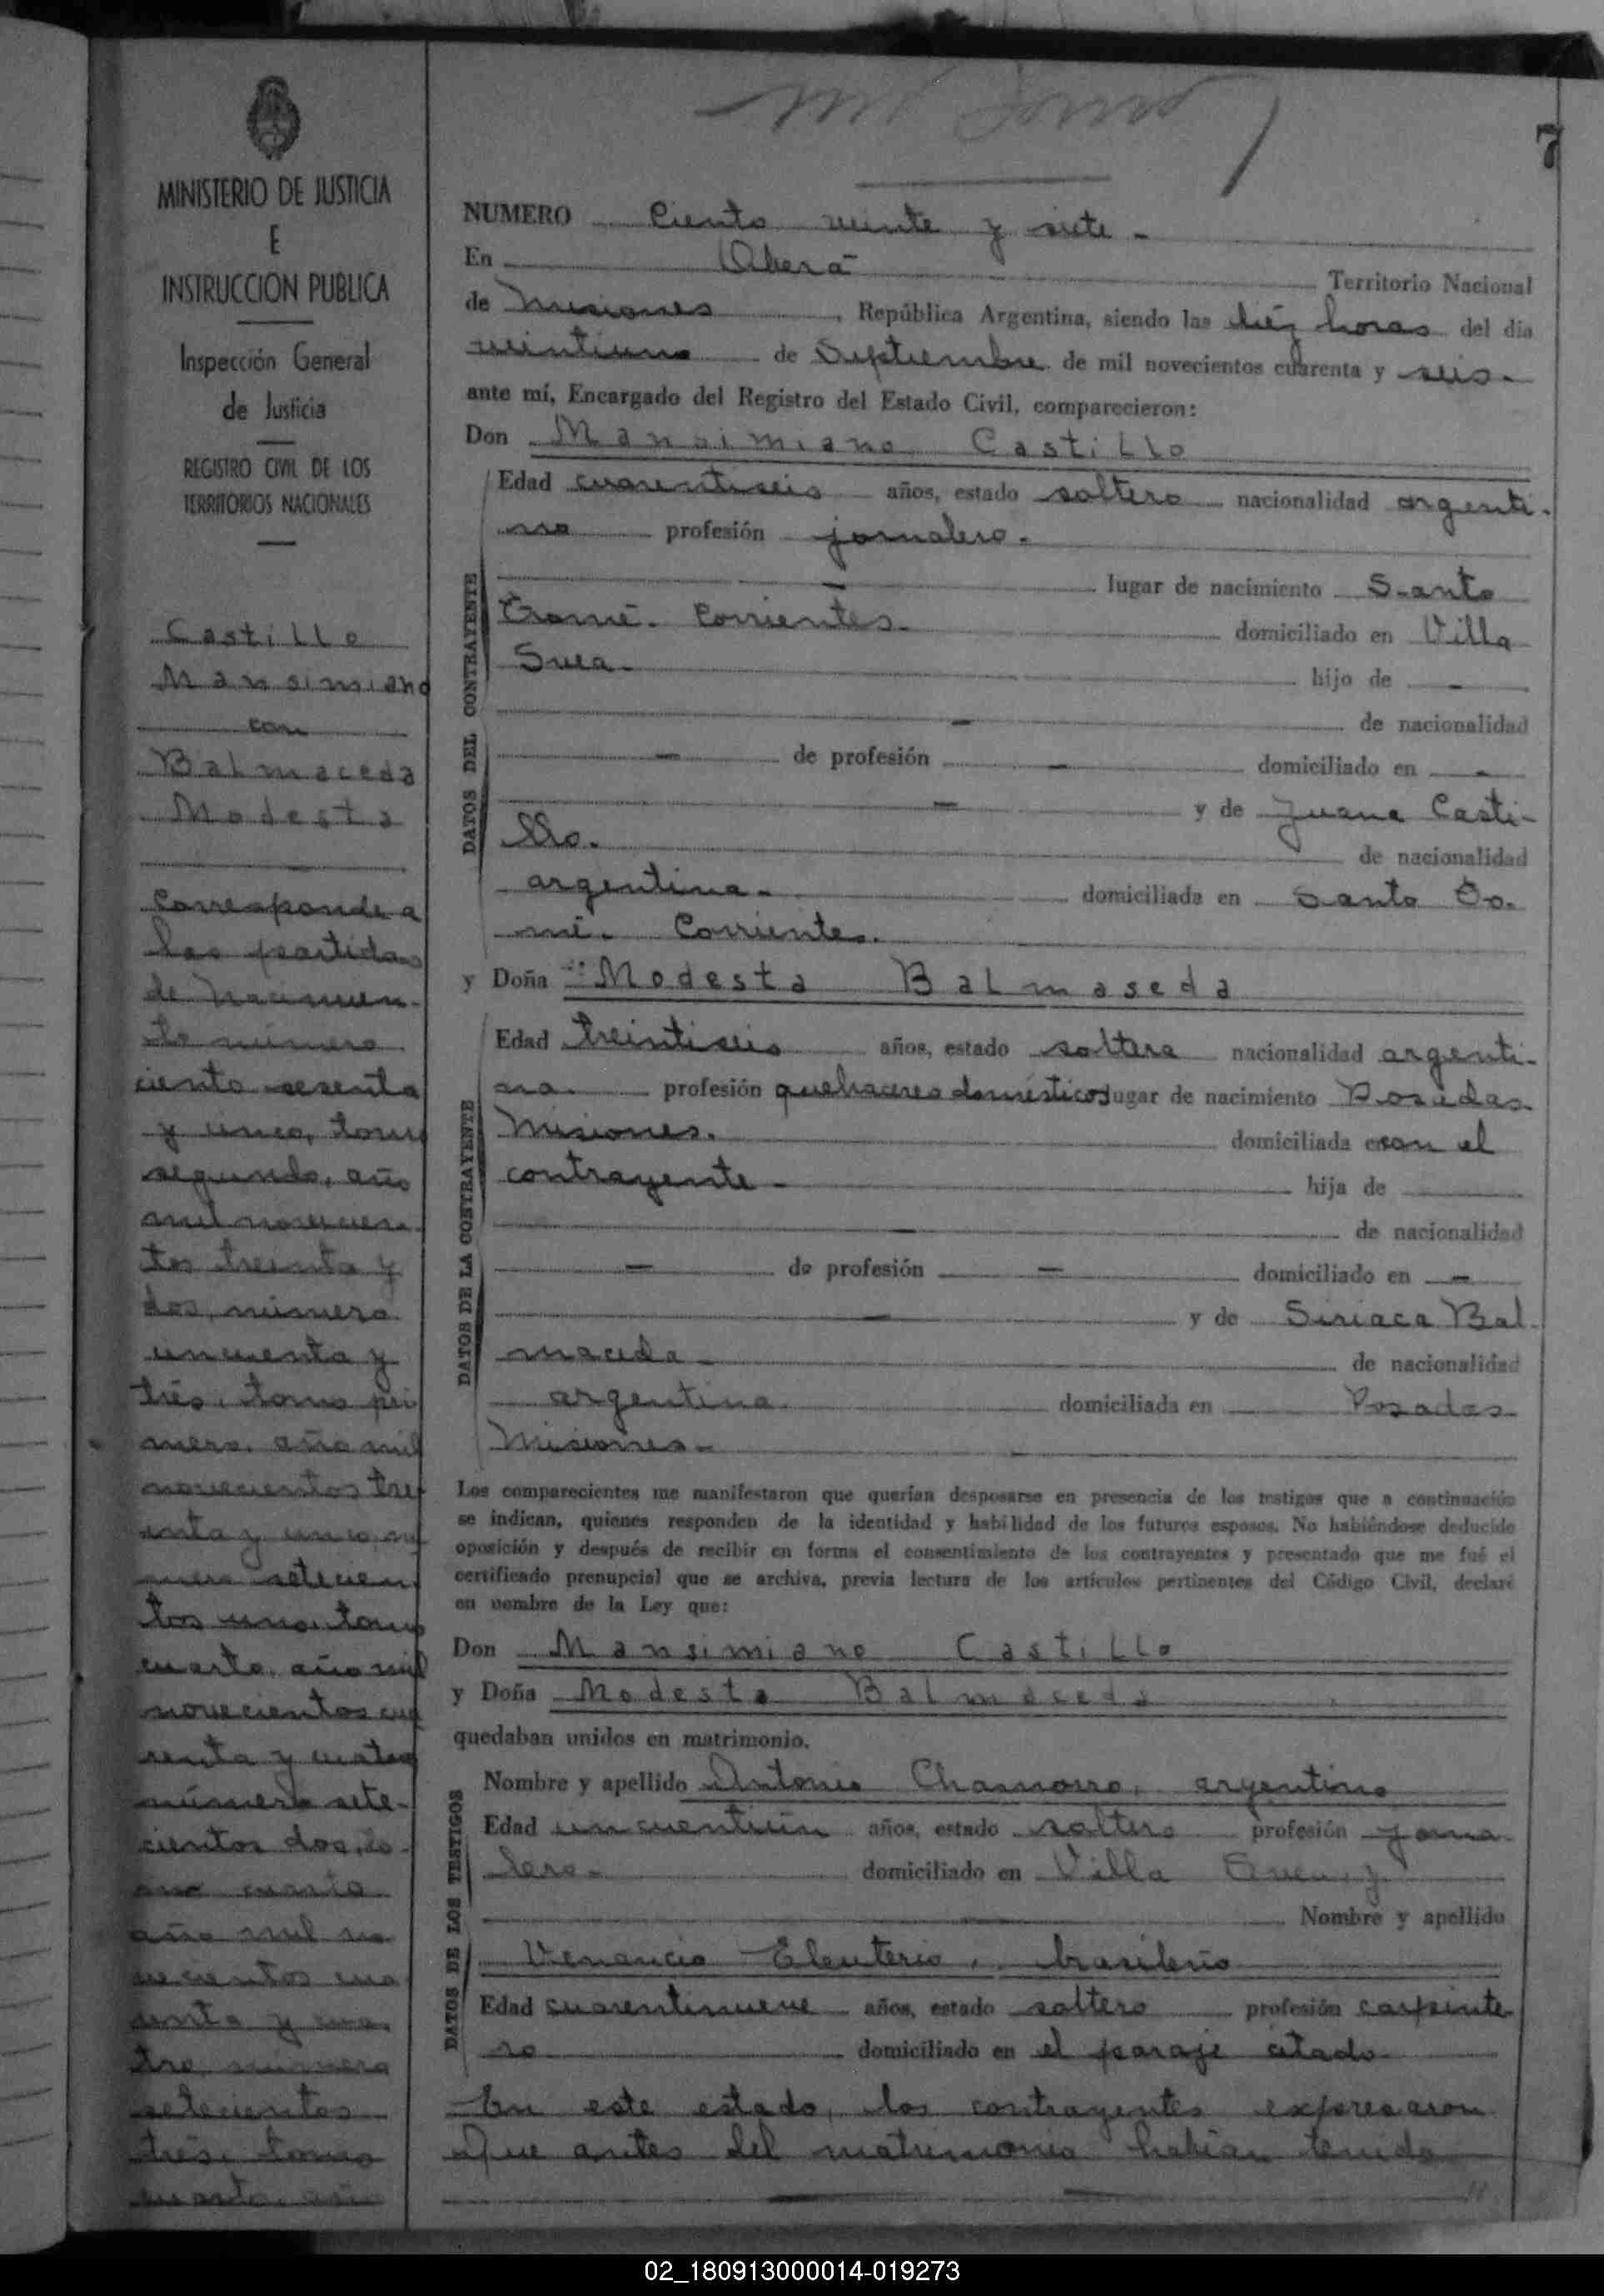 7
MINISTERIO DE JUSTICIA
E
INSTRUCCION PUBLICA
Inspección General
de Justicia
REGISTRO CIVIL DE LOS
TERRITORIOS NACIONALES
Castillo
Mansimiano
con
Balmaceda
Modesta
Corresponde a
las partidas
de nacimien-
to número
ciento sesenta
y cinco, tomo
segundo, año
mil novecien-
tos treinta y
dos, número
cincuenta y
trés, tomo pri
mero, año mil
novecientos tre
inta y cinco, nú
mero setecien
tos uno, tomo
cuarto, año mil
novecientos cua
renta y cuatro
número sete-
cientos dos, to-
mo cuarto
año mil no
vecientos cua
renta y cua
tro, número
setecientos
trés, tomo
cuarto, año
NUMERO Ciento veinte y siete -
En Oberá Territorio Nacional
de Misiones, República Argentina, siendo las diéz horas del día
veintiuno de Septiembre de mil novecientos cuarenta y seis.-
ante mí, Encargado del Registro del Estado Civil, comparecieron:
Don Mansimiano Castillo
DATOS DEL CONTRAYENTE
Edad cuarentiseis años, estado soltero nacionalidad argenti-
no profesión jornalero.
- lugar de nacimiento Santo
Tomé. Corrientes. domiciliado en Villa
Svea. hijo de -
- de nacionalidad
- de profesión - domiciliado en -
- y de Juana Casti-
llo. de nacionalidad
argentina - domiciliada en Santo To.
mé. Corrientes.
y Doña Modesta Balmaseda
DATOS DE LA CONTRAYENTE
Edad treintiseis años, estado soltera nacionalidad argenti-
na. profesión quehaceres domésticos lugar de nacimiento Posadas
Misiones. domiciliada en con el
contrayente - hija de
- de nacionalidad
- de profesión - domiciliado en -
- y de Siriaca Bal
maceda - de nacionalidad
argentina domiciliada en Posadas
Misiones -
Los comparecientes me manifestaron que querían desposarse en presencia de los testigos que a continuación
se indican, quienes responden de la identidad y habilidad de los futuros esposos. No habiéndose deducido
oposición y después de recibir en forma el consentimiento de los contrayentes y presentado que me fué el
certificado prenupcial que se archiva, previa lectura de los artículos pertinentes del Código Civil, declaré
en nombre de la Ley que:
Don Mansimiano Castillo
y Doña Modesta Balmaceda
quedaban unidos en matrimonio.
DATOS DE LOS TESTIGOS
Nombre y apellido Antonio Chamorro, argentino
Edad cincuentiún años, estado soltero profesión jorna-
lero - domiciliado en Villa
Nombre y apellido
Venancio Eleuterio, brasileño
Edad cuarentinueve años, estado soltero profesión carpinte
ro domiciliado en el paraje citado
En este estado, los contrayentes expresaron
que antes del matrimonio habían tenido
02_180913000014-019273